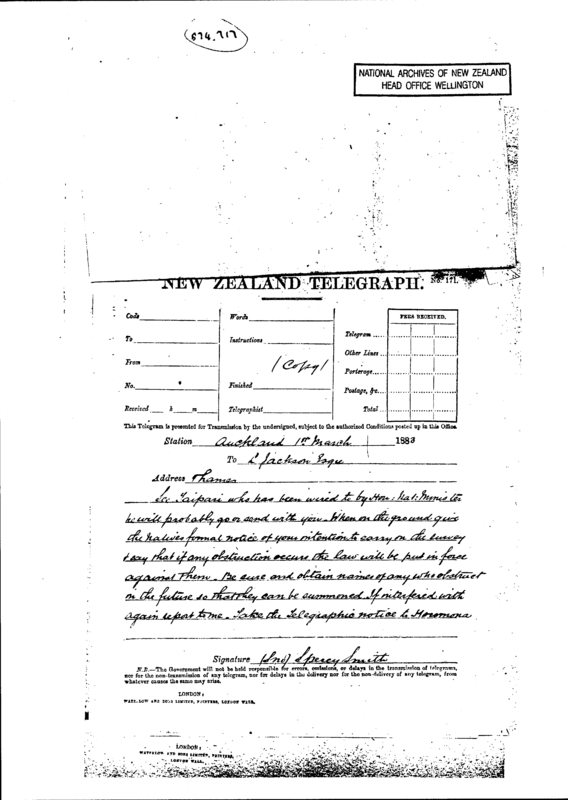 874.717
NATIONAL ARCHIVES OF NEW ZEALAND
HEAD OFFICE WELLINGTON
NEW ZEALAND TELEGRAPH. No. 171.
Code Words FEES RECEIVED.
To Instructions Telegram
From (Copy) Other Lines
Porterage
No. Finished Postage, &c.
Received h m Telegraphist Total
This Telegram is presented for Transmission by the undersigned, subject to the authorized Conditions posted up in this Office.
Station Auckland 1st March 1883
To L Jackson Esqre
Address Thames
See Taipari who has been wired to by Hon: Nat: Minister
he will probably go or send with you. When on the ground give
the Natives formal notice of your intention to carry on the survey
& say that if any obstruction occurs the law will be put in force
against them. Be sure and obtain names of any who obstruct
in the future so that they can be summoned. If interfered with
again report to me. Take the Telegraphic notice to Horomona
Signature (Snd) S Percy Smith
N.B.—The Government will not be held responsible for errors, omissions, or delays in the transmission of telegrams,
nor for the non-transmission of any telegram, nor for delays in the delivery nor for the non-delivery of any telegram, from
whatever causes the same may arise.
LONDON:
WATERLOW AND SONS LIMITED, PRINTERS, LONDON WALL.
LONDON:
WATERLOW AND SONS LIMITED, PRINTERS,
LONDON WALL.